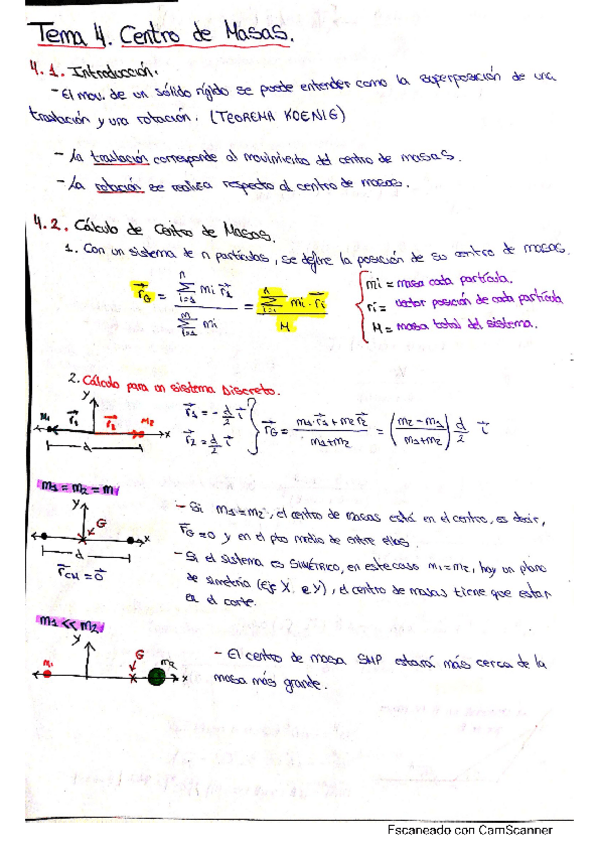 Tema 4. Centro de Masas.
4.1. Introducción.
- El mov. de un sólido rígido se puede entender como la superposición de una
traslación y una rotación. (TEOREMA KOENIG)
- La traslación corresponde al movimiento del centro de masas.
- La rotación se realiza respecto al centro de masas.
4.2. Cálculo de Centro de Masas.
1. Con un sistema de n partículas, se define la posición de su centro de masas.
r⃗G = (Σ(i=1→n) mi r⃗i) / (Σ(i=1→n) mi) = (Σ(i=1→n) mi · r⃗i) / M
mi = masa cada partícula.
ri = vector posición de cada partícula
M = masa total del sistema.
2. Cálculo para un sistema Discreto.
y
m1 r⃗1 r⃗2 m2 x
d
r⃗1 = - d/2 i⃗
r⃗2 = d/2 i⃗
r⃗G = (m1·r⃗1 + m2 r⃗2) / (m1+m2) = ((m2 - m1) / (m1+m2)) d/2 i⃗
m1 = m2 = m
y
G
x
d
r⃗CM = 0⃗
- Si m1 = m2, el centro de masas está en el centro, es decir,
r⃗G = 0 y en el pto medio de entre ellas.
- Si el sistema es SIMÉTRICO, en este caso m1 = m2, hay un plano
de simetría (Eje X e Y), el centro de masas tiene que estar
en el corte.
m1 << m2
y
m1 G m2 x
- El centro de masa SMP estará más cerca de la
masa más grande.
Escaneado con CamScanner